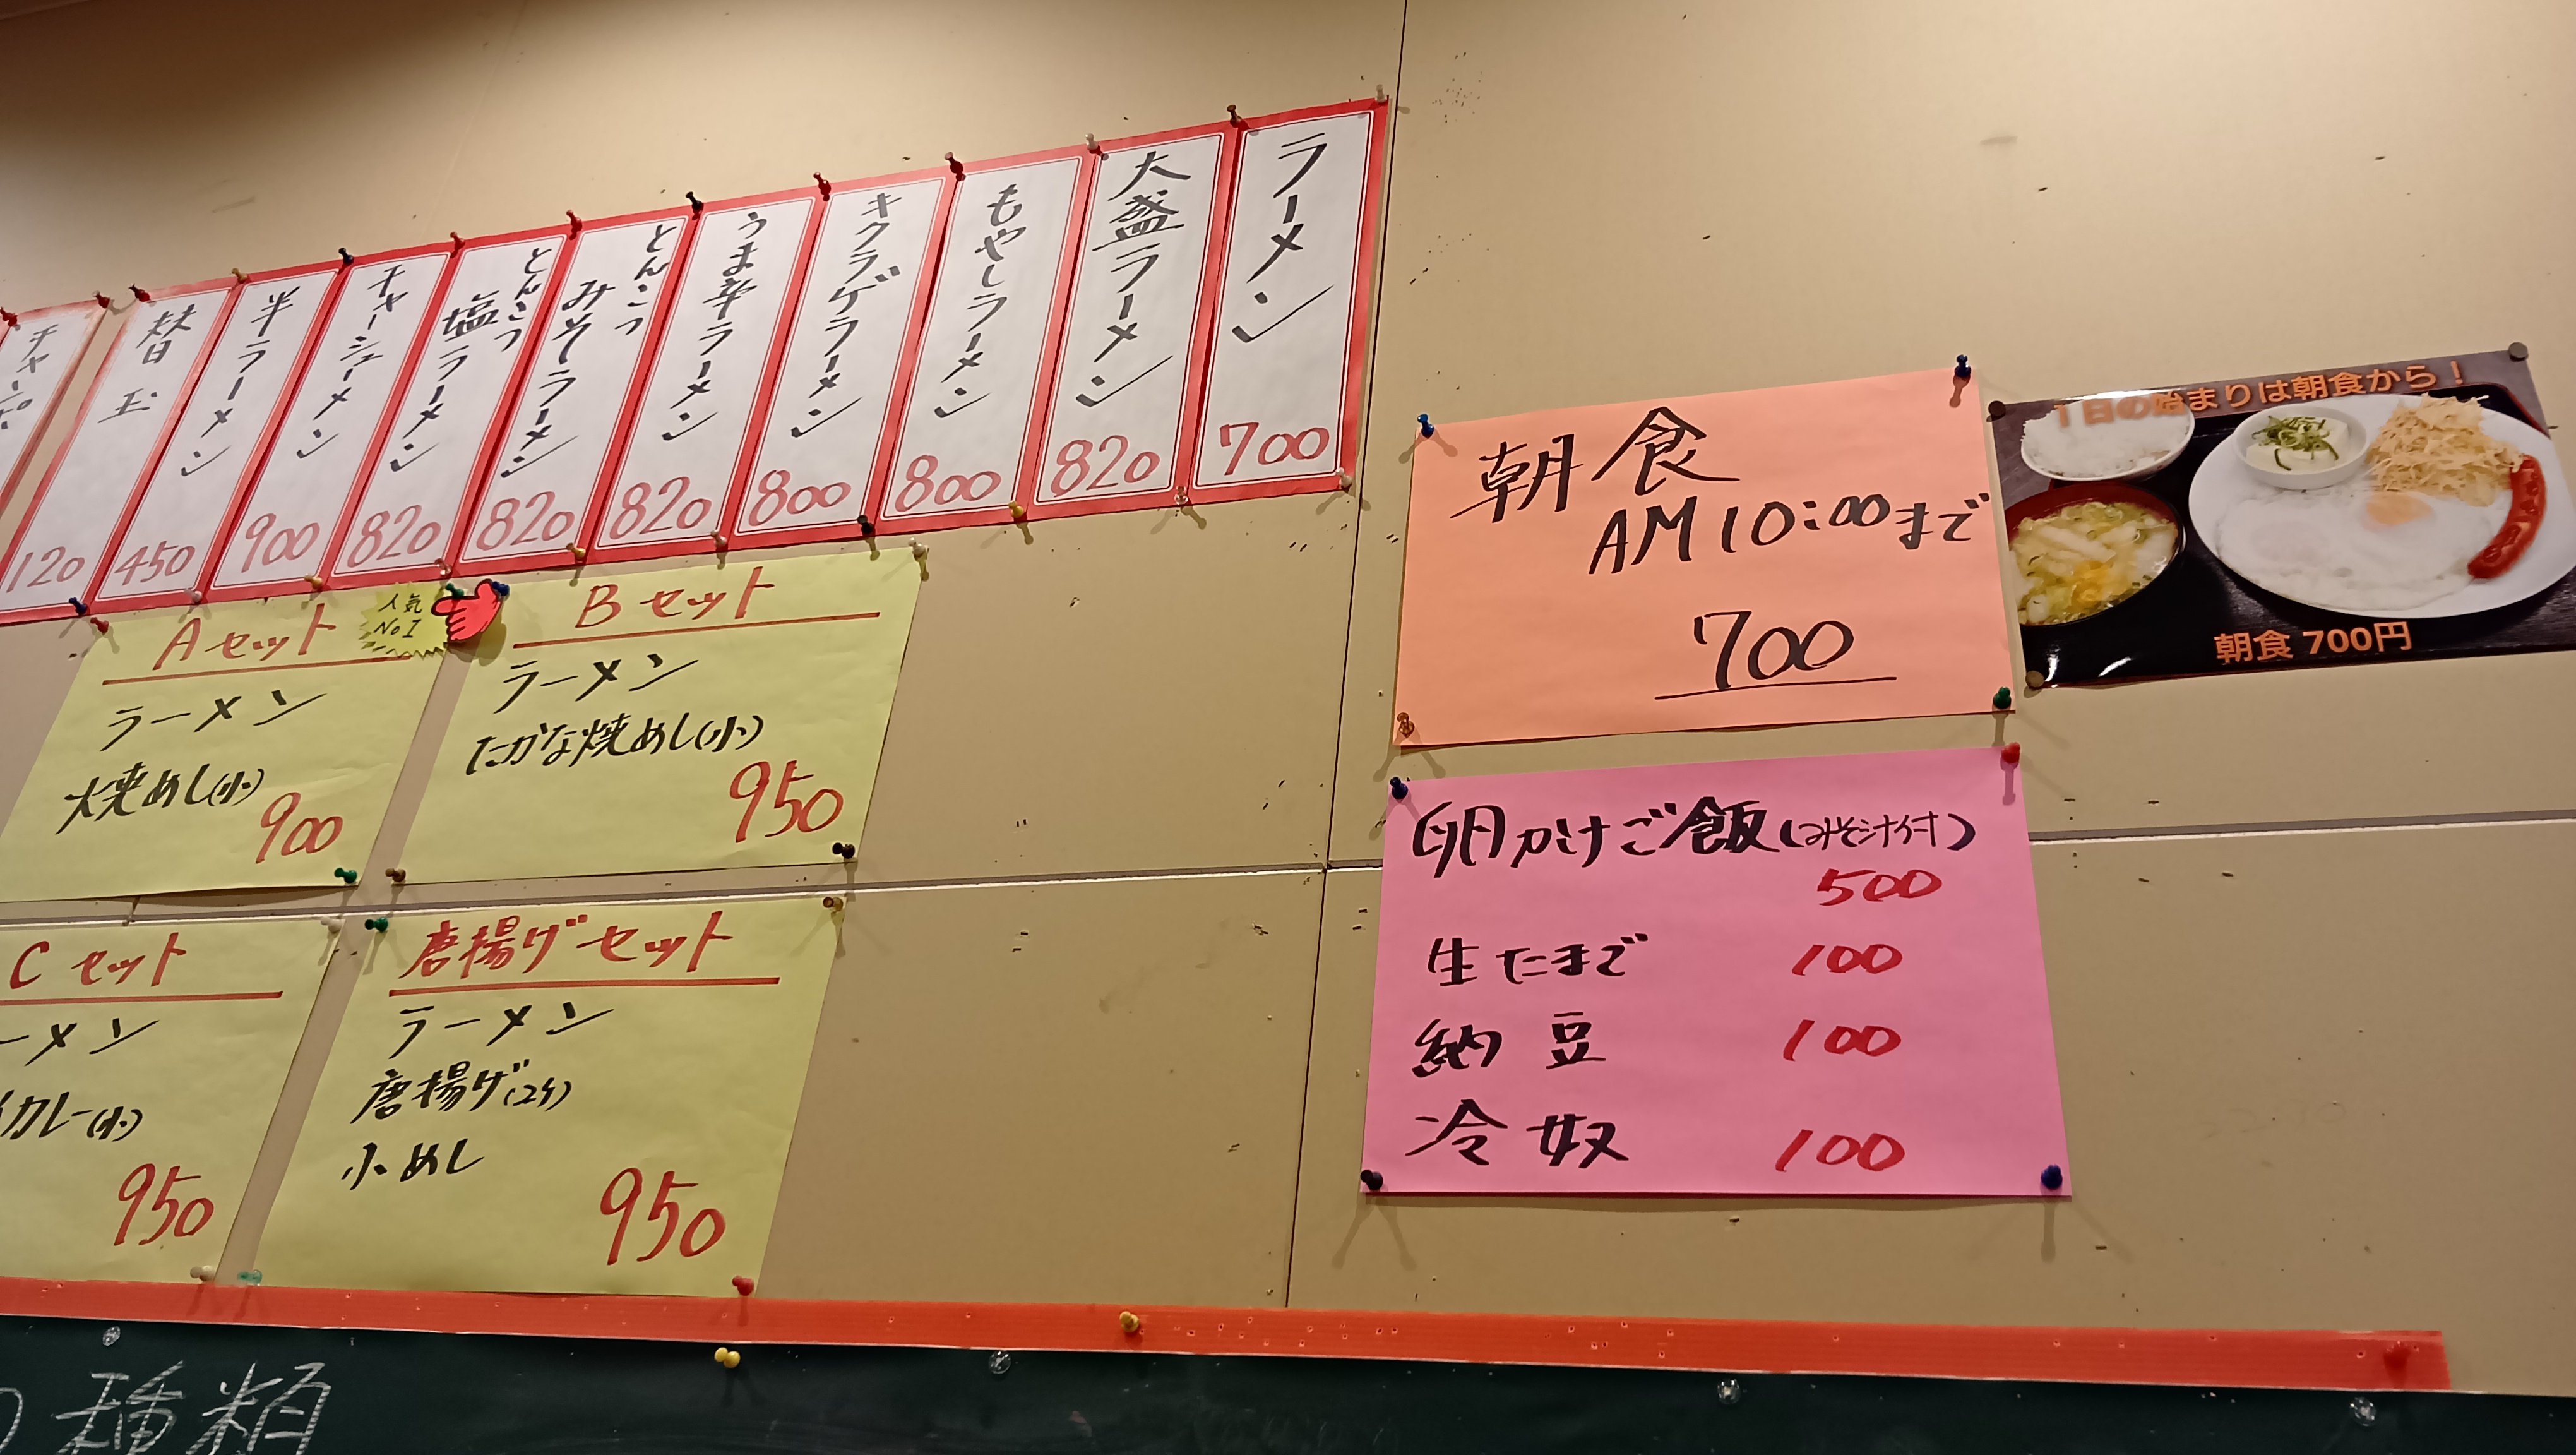 ラーメン
700
大盛ラーメン
820
もやしラーメン
800
キクラゲラーメン
800
うま辛ラーメン
820
とんこつ
みそラーメン
820
とんこつ
塩ラーメン
820
チャーシューメン
900
半ラーメン
450
替玉
120
チャンポ
Aセット
ラーメン
焼めし(小)
900
人気
No1
Bセット
ラーメン
たかな焼めし(小)
950
Cセット
ーメン
カレー(小)
950
唐揚げセット
ラーメン
唐揚げ(2ケ)
小めし
950
朝食
AM10:00まで
700
1日の始まりは朝食から!
朝食 700円
卵かけご飯(みそ汁付)
500
生たまご 100
納豆 100
冷奴 100
種類